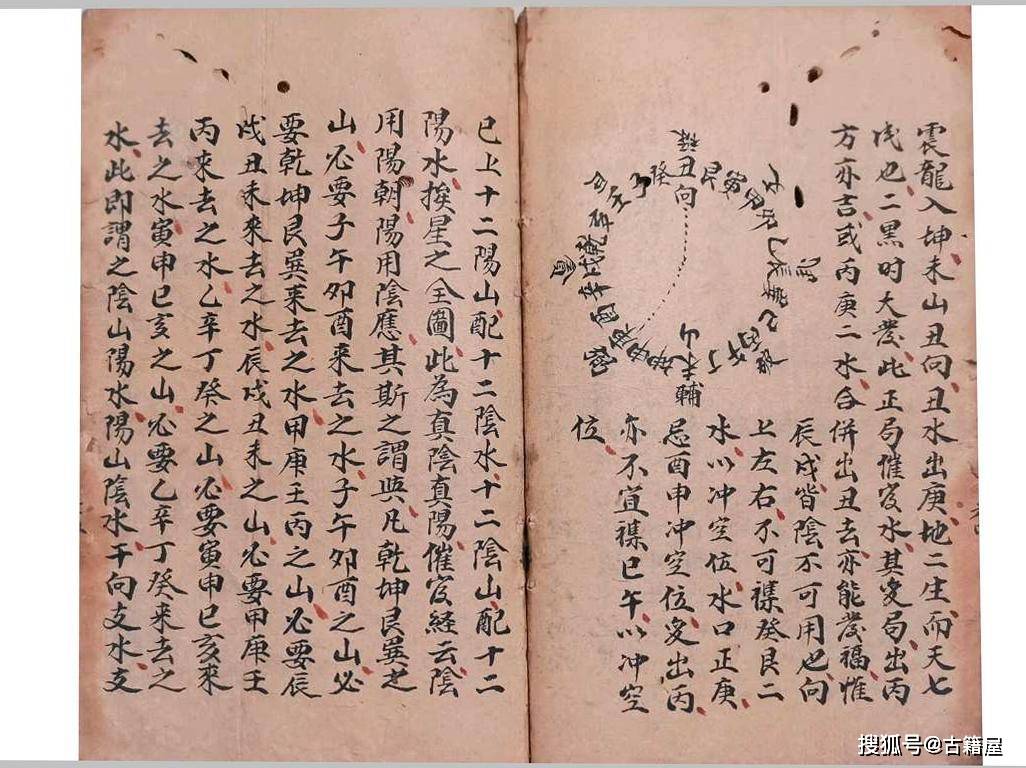 震龍入坤未山丑向丑水出庚地二生而天七
成也二黑时大發此正局催官水其变局出丙
方亦吉或丙庚二水合併出丑去亦能發福惟
辰戌皆陰不可用也向
上左右不可襍癸艮二
水以冲空位水口正庚
忌酉申冲空位变出丙
亦不宜襍巳午以冲空
位
丑向
癸
艮寅甲卯乙
巳丙午丁
未山
輔
坤申庚酉辛戌乾亥壬子
已上十二陽山配十二陰水十二陰山配十二
陽水挨星之全圖此為真陰真陽催官経云陰
用陽朝陽用陰應其斯之謂與凡乾坤艮巽之
山必要子午卯酉来去之水子午卯酉之山必
要乾坤艮巽来去之水甲庚壬丙之山必要辰
戌丑未来去之水辰戌丑未之山必要甲庚壬
丙来去之水乙辛丁癸之山必要寅申巳亥来
去之水寅申巳亥之山必要乙辛丁癸来去之
水此即謂之陰山陽水陽山陰水干向支水支
搜狐号@古籍屋